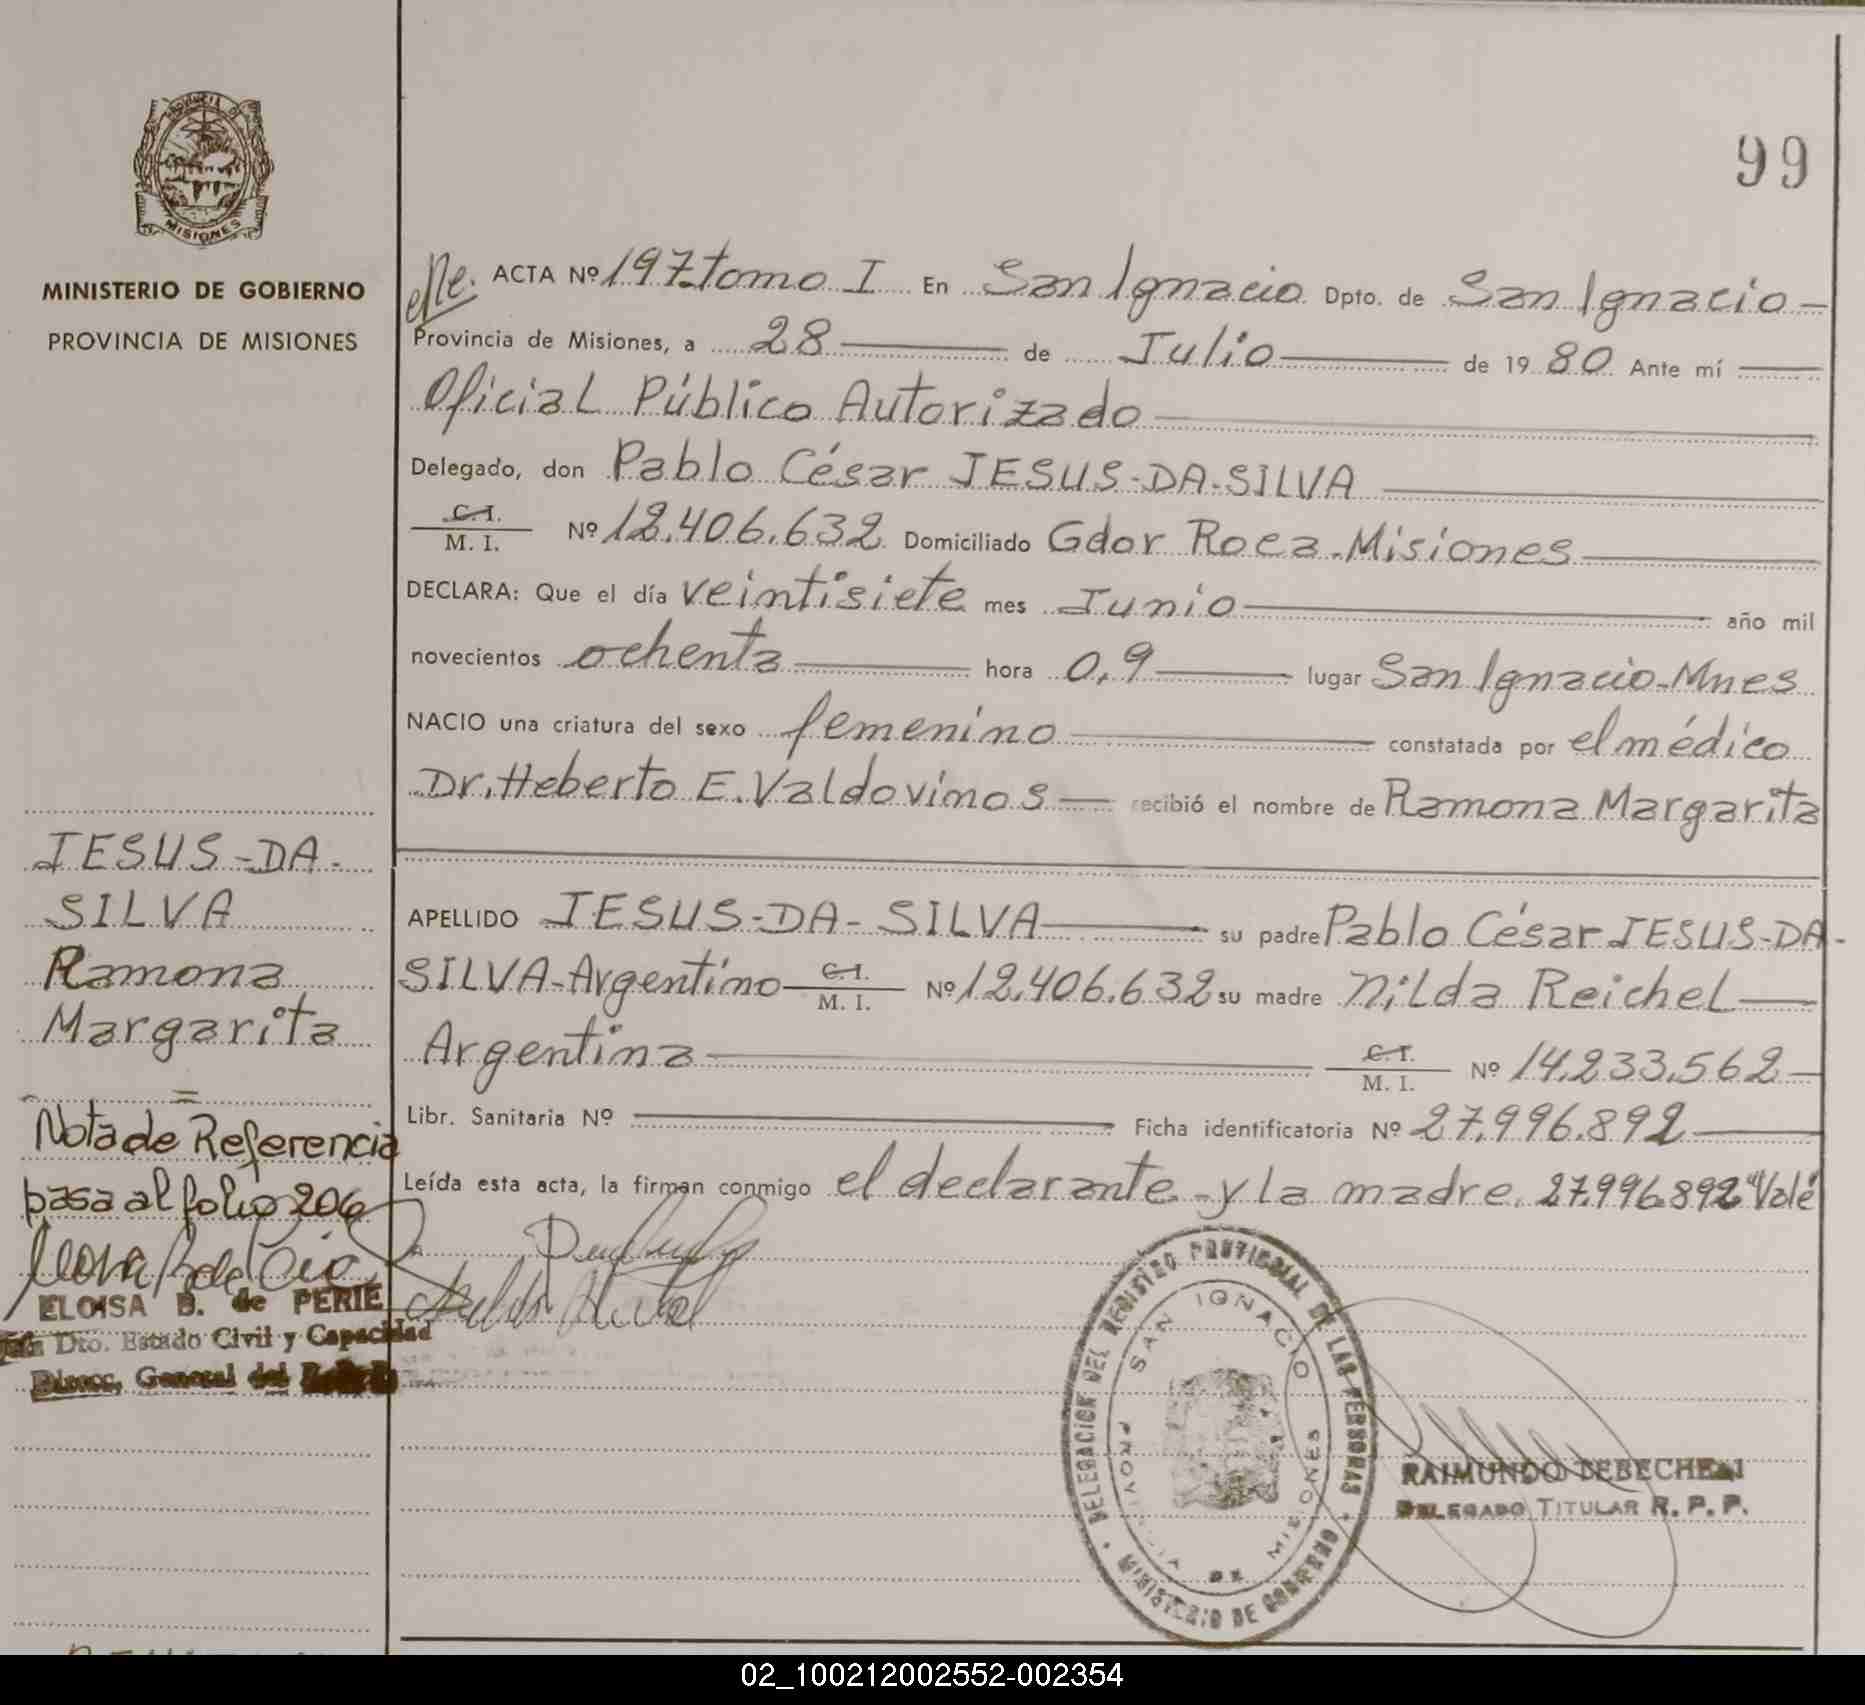 PROVINCIA DE
MISIONES
MINISTERIO DE GOBIERNO
PROVINCIA DE MISIONES
99
ACTA Nº 197 tomo I En San Ignacio Dpto. de San Ignacio
Provincia de Misiones, a 28 de Julio de 1980 Ante mí
Oficial Público Autorizado
Delegado, don Pablo César JESUS-DA-SILVA
C.I.
M. I. Nº 12.406.632 Domiciliado Gdor Roca-Misiones
DECLARA: Que el día veintisiete mes Junio año mil
novecientos ochenta hora 0,9 lugar San Ignacio-Mnes
NACIO una criatura del sexo femenino constatada por el médico
Dr. Heberto E. Valdovinos recibió el nombre de Ramona Margarita
APELLIDO JESUS-DA-SILVA su padre Pablo César JESUS-DA-
SILVA-Argentino C.I. M. I. Nº 12.406.632 su madre Nilda Reichel
Argentina C.I. M. I. Nº 14.233.562
Libr. Sanitaria Nº Ficha identificatoria Nº 27.996.892
Leída esta acta, la firman conmigo el declarante y la madre. 27.996.892 "Vale
JESUS-DA-
SILVA
Ramona
Margarita
Nota de Referencia
pasa al folio 206
ELOISA B. de PERIE
Dto. Estado Civil y Capacidad
Direcc. General del
DELEGACION DEL REGISTRO PROVINCIAL DE LAS PERSONAS
MINISTERIO DE GOBIERNO
SAN IGNACIO
PROVINCIA DE MISIONES
RAIMUNDO
DELEGADO TITULAR R. P. P.
02_100212002552-002354